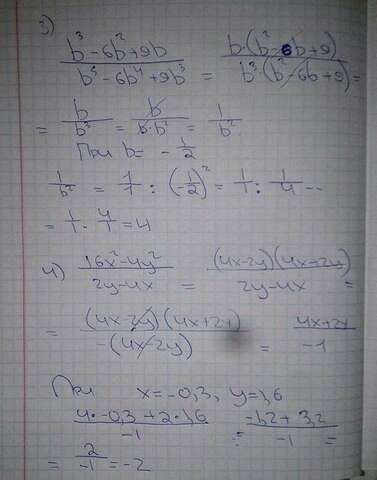 3)
b³ - 6b² + 9b / b⁵ - 6b⁴ + 9b³ = b·(b² - 6b + 9) / b³·(b² - 6b + 9) =
= b / b³ = b / b·b² = 1 / b²
При b = - 1/2
1/b² = 1/1 : (-1/2)² = 1/1 : 1/4 --
= 1/1 · 4/1 = 4
4) 16x² - 4y² / 2y - 4x = (4x - 2y)(4x + 2y) / 2y - 4x =
= (4x - 2y)(4x + 2y) / -(4x - 2y) = 4x + 2y / -1
При x = -0,3, y = 1,6
4·-0,3 + 2·1,6 / -1 = -1,2 + 3,2 / -1 =
= 2 / -1 = -2